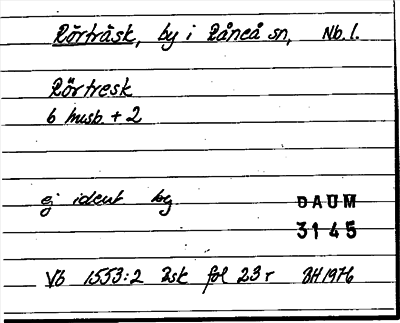 Rörträsk, by i Råneå sn, Nb. l.
Rörtresk
6 husb. + 2
ej ident by. DAUM
3145
Vb 1553:2 Rsk fol 23 r BH 1976